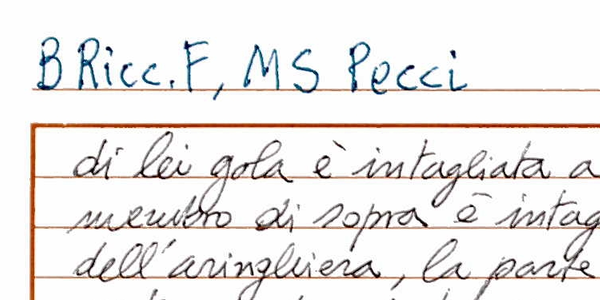 B Ricc. F, MS Pecci
di lei gola è intagliata a
membro di sopra è intag
dell'aringhiera, la parte